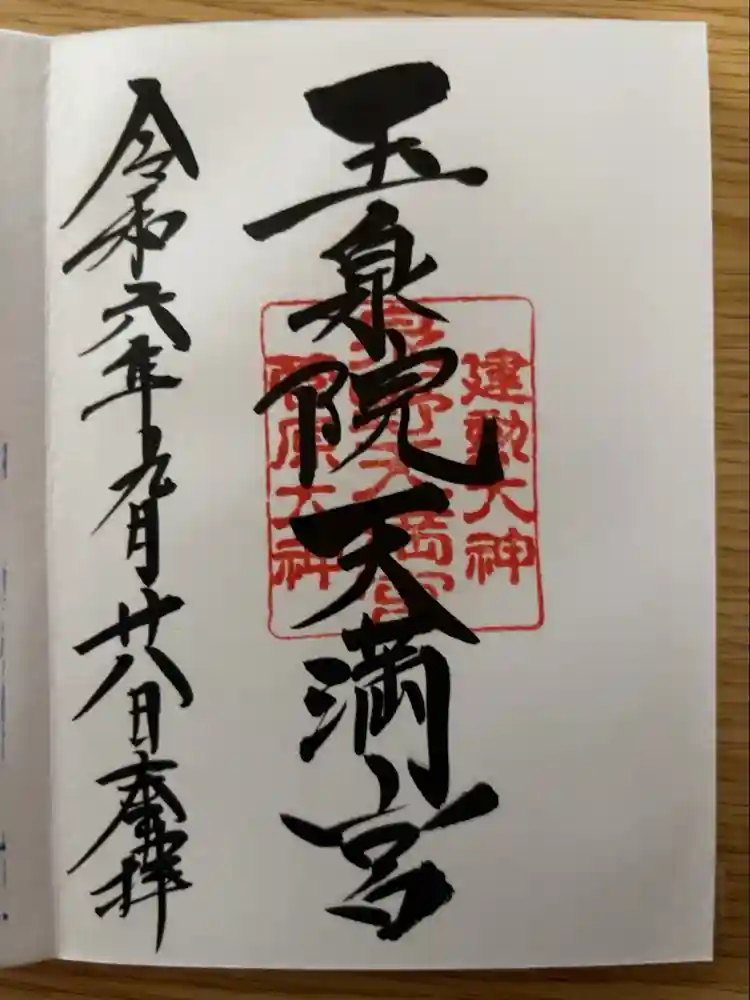 玉泉院天満宮
建勲大神
菅原大神
令和六年九月廿八日奉拝